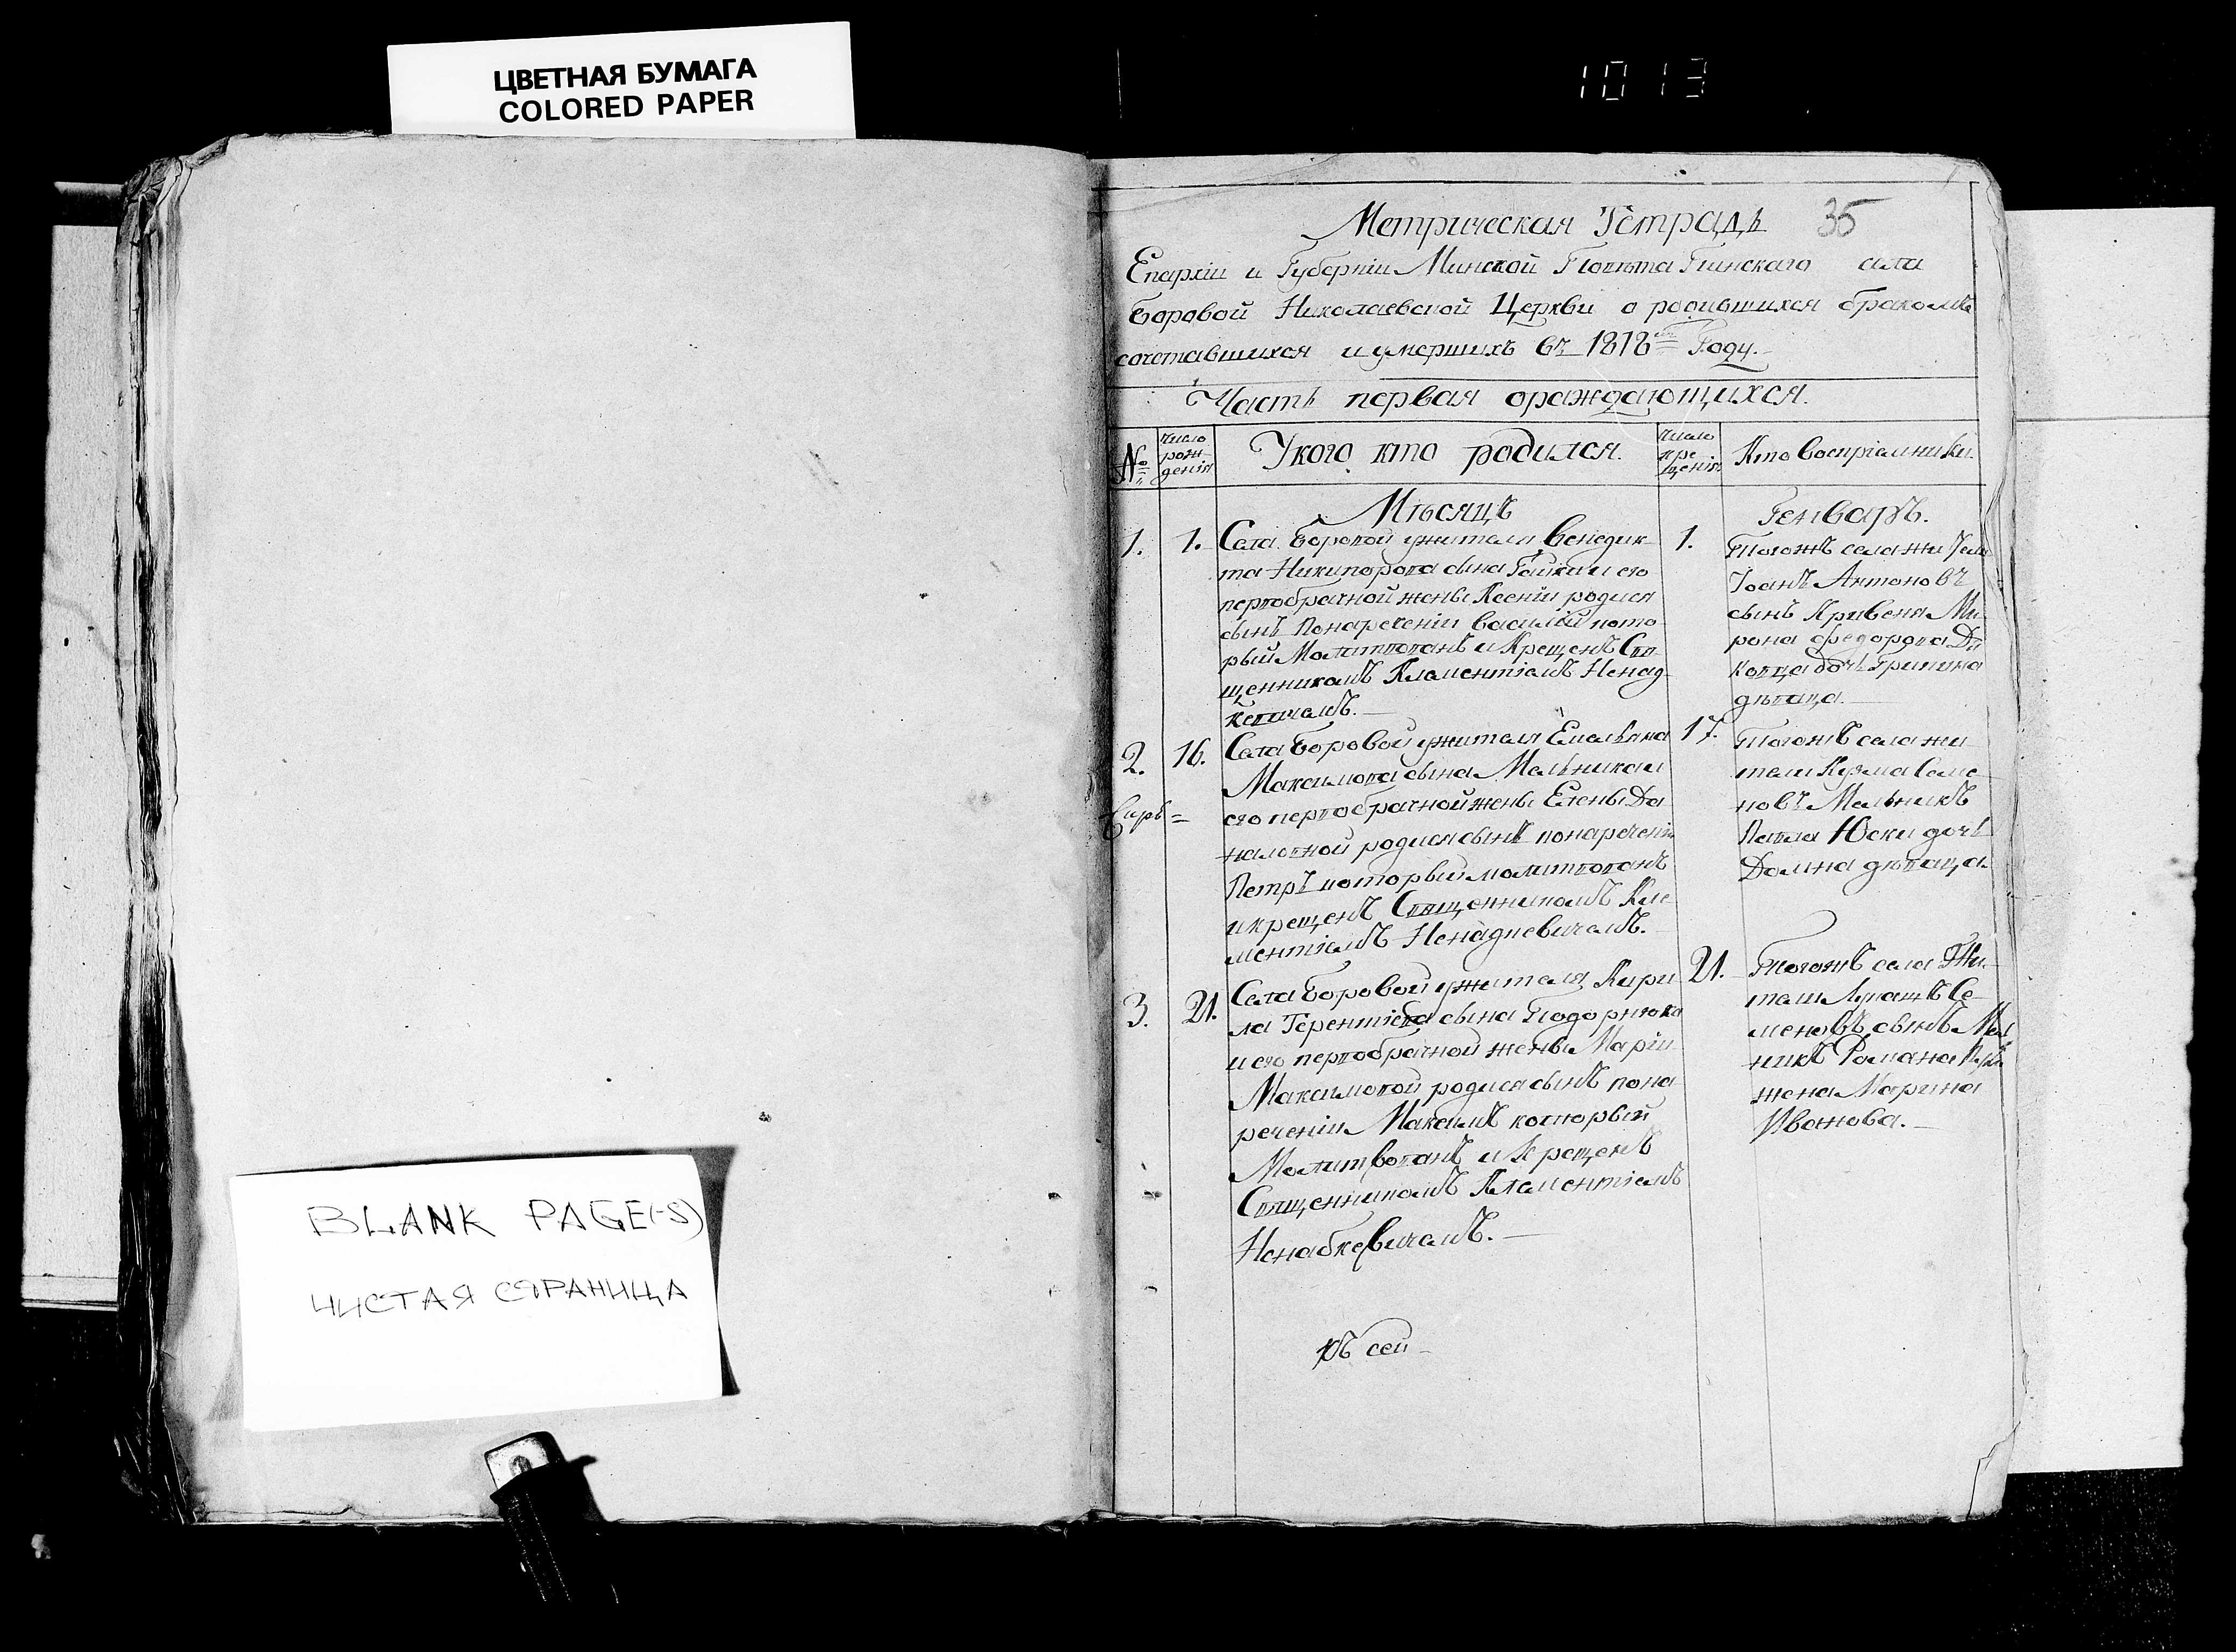 ЦВЕТНАЯ БУМАГА
COLORED PAPER
1013
BLANK PAGE(-S)
ЧИСТАЯ СТРАНИЦА
Метрическая Тетрадь 35
Епархіи и Губерніи Минской Повѣта Пинскаго села
Боровой Николаевской Церкви о родившихся бракомъ
сочетавшихся и умершихъ въ 1818 Году.
Часть первая ораждающихся.
№
число рождения
У кого кто родился.
число крещения
Кто Воспріемники.
Мѣсяцъ Генварь.
1. 1.
Села Боровой ужителя Венедик
та Никипорова сына и его
первобрачной жены Ксеніи родися
сынъ Понаречении Василий кото
рый Молитвованъ и Крещенъ Свя
щенникомъ Климентіемъ Ненад
кевичемъ.
1.
Тогожъ села жители
Іоанъ Антоновъ
сынъ Кривеня Ми
рона Федорова
дочь
дѣвица.
2. 16.
Села Боровой ужителя Емельяна
Максимова сына Мельника и
его первобрачной жены Елены Да
ниловной родися сынъ понаречении
Петръ который молитвованъ
и крещенъ Священникомъ Кле
ментіемъ Ненадкевичемъ.
17.
Тогожъ села жи
тели Кузма Семе
новъ Мельникъ
Павла Юски дочь
Домна дѣвица.
3. 21.
Села Боровой ужителя Кири
ла Терентіева сына
и его первобрачной жены Маріи
Максимовой родися сынъ пона
речении Максимъ который
Молитвованъ и Крещенъ
Священникомъ Климентіемъ
Ненадкевичемъ.
21.
Тогожъ села Жи
тели Лукашъ Се
меновъ сынъ Мел
никъ Романа
жена Марина
Иванова.